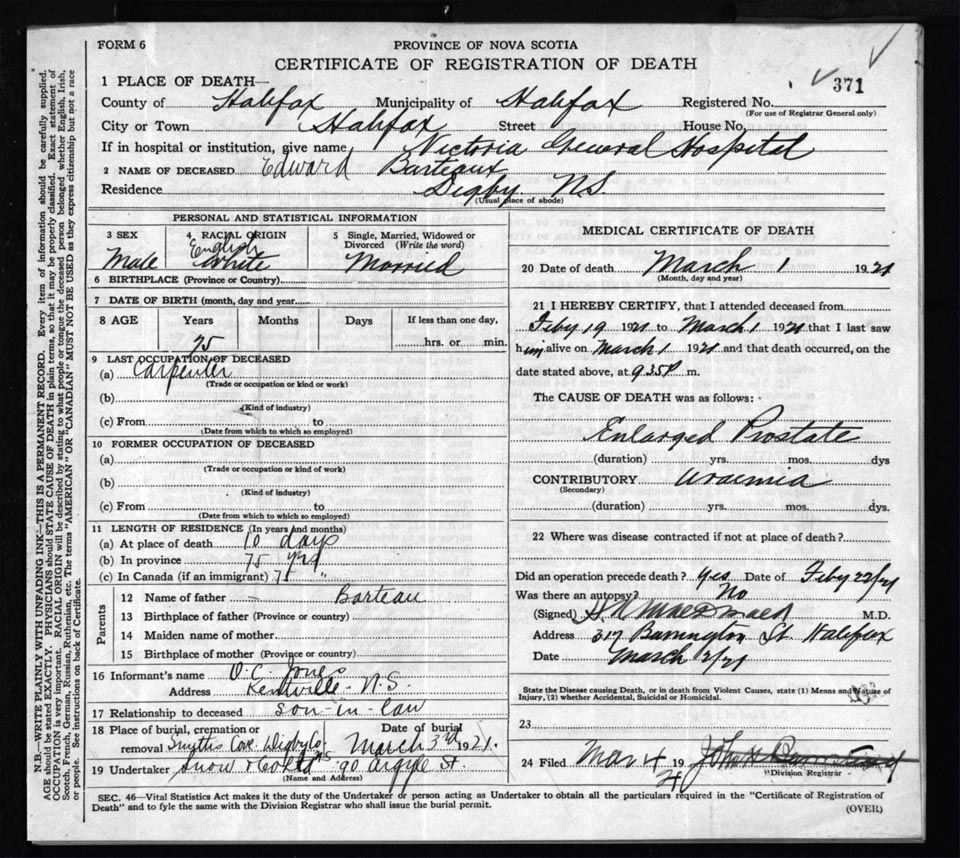 FORM 6
PROVINCE OF NOVA SCOTIA
CERTIFICATE OF REGISTRATION OF DEATH
371
1 PLACE OF DEATH—
County of Halifax Municipality of Halifax Registered No.
(For use of Registrar General only)
City or Town Halifax Street House No.
If in hospital or institution, give name Victoria General Hospital
2 NAME OF DECEASED Edward Barteaux
Residence Digby NS
(Usual place of abode)
PERSONAL AND STATISTICAL INFORMATION
3 SEX
Male
4 RACIAL ORIGIN
English
White
5 Single, Married, Widowed or Divorced (Write the word)
Married
6 BIRTHPLACE (Province or Country)
7 DATE OF BIRTH (month, day and year
8 AGE Years Months Days If less than one day,
75 hrs. or min.
9 LAST OCCUPATION OF DECEASED
(a) Carpenter
(Trade or occupation or kind or work)
(b)
(Kind of industry)
(c) From to
(Date from which to which so employed)
10 FORMER OCCUPATION OF DECEASED
(a)
(Trade or occupation or kind of work)
(b)
(Kind of industry)
(c) From to
(Date from which to which so employed)
11 LENGTH OF RESIDENCE (In years And months)
(a) At place of death 10 days
(b) In province 75 yrs
(c) In Canada (if an immigrant) 75 "
Parents
12 Name of father — Barteau
13 Birthplace of father (Province or country)
14 Maiden name of mother
15 Birthplace of mother (Province or country)
16 Informant's name O. C. Jones
Address Kentville - N.S.
17 Relationship to deceased son-in-law
18 Place of burial, cremation or removal Smiths Cove Digby Co NS
Date of burial
March 3rd 1921.
19 Undertaker Snow & Co Ltd 90 Argyle St.
(Name and Address)
MEDICAL CERTIFICATE OF DEATH
20 Date of death March 1 1921
(Month, day and year)
21 I HEREBY CERTIFY, that I attended deceased from
Feby 19 1921 to March 1 1921 that I last saw
him alive on March 1 1921 and that death occurred, on the
date stated above, at 9.35P m.
The CAUSE OF DEATH was as follows:
Enlarged Prostate
(duration) yrs. mos. dys
CONTRIBUTORY Uraemia
(Secondary)
(duration) yrs. mos. dys.
22 Where was disease contracted if not at place of death?
Did an operation precede death? Yes Date of Feby 22/21
Was there an autopsy? No
(Signed) M.D.
Address 317 Barrington St. Halifax
Date March 12/21
State the Disease causing Death, or in death from Violent Causes, state (1) Means and Nature of
Injury, (2) whether Accidental, Suicidal or Homicidal.
23
24 Filed Mar 4 19 21 John
Division Registrar
SEC. 46—Vital Statistics Act makes it the duty of the Undertaker or person acting as Undertaker to obtain all the particulars required in the "Certificate of Registration of
Death" and to fyle the same with the Division Registrar who shall issue the burial permit.
(OVER)
N.B.—WRITE PLAINLY WITH UNFADING INK—THIS IS A PERMANENT RECORD. Every item of information should be carefully supplied.
AGE should be stated EXACTLY. PHYSICIANS should STATE CAUSE OF DEATH in plain terms, so that it may be properly classified. Exact statement of
OCCUPATION is very important. RACIAL ORIGIN will be described by stating to what people or tongue the deceased person belonged whether English, Irish,
Scotch, French, German, Russian, Ruthenian, etc. The terms "AMERICAN" OR "CANADIAN" MUST NOT BE USED as they express citizenship but not a race
or people. See instructions on back of Certificate.